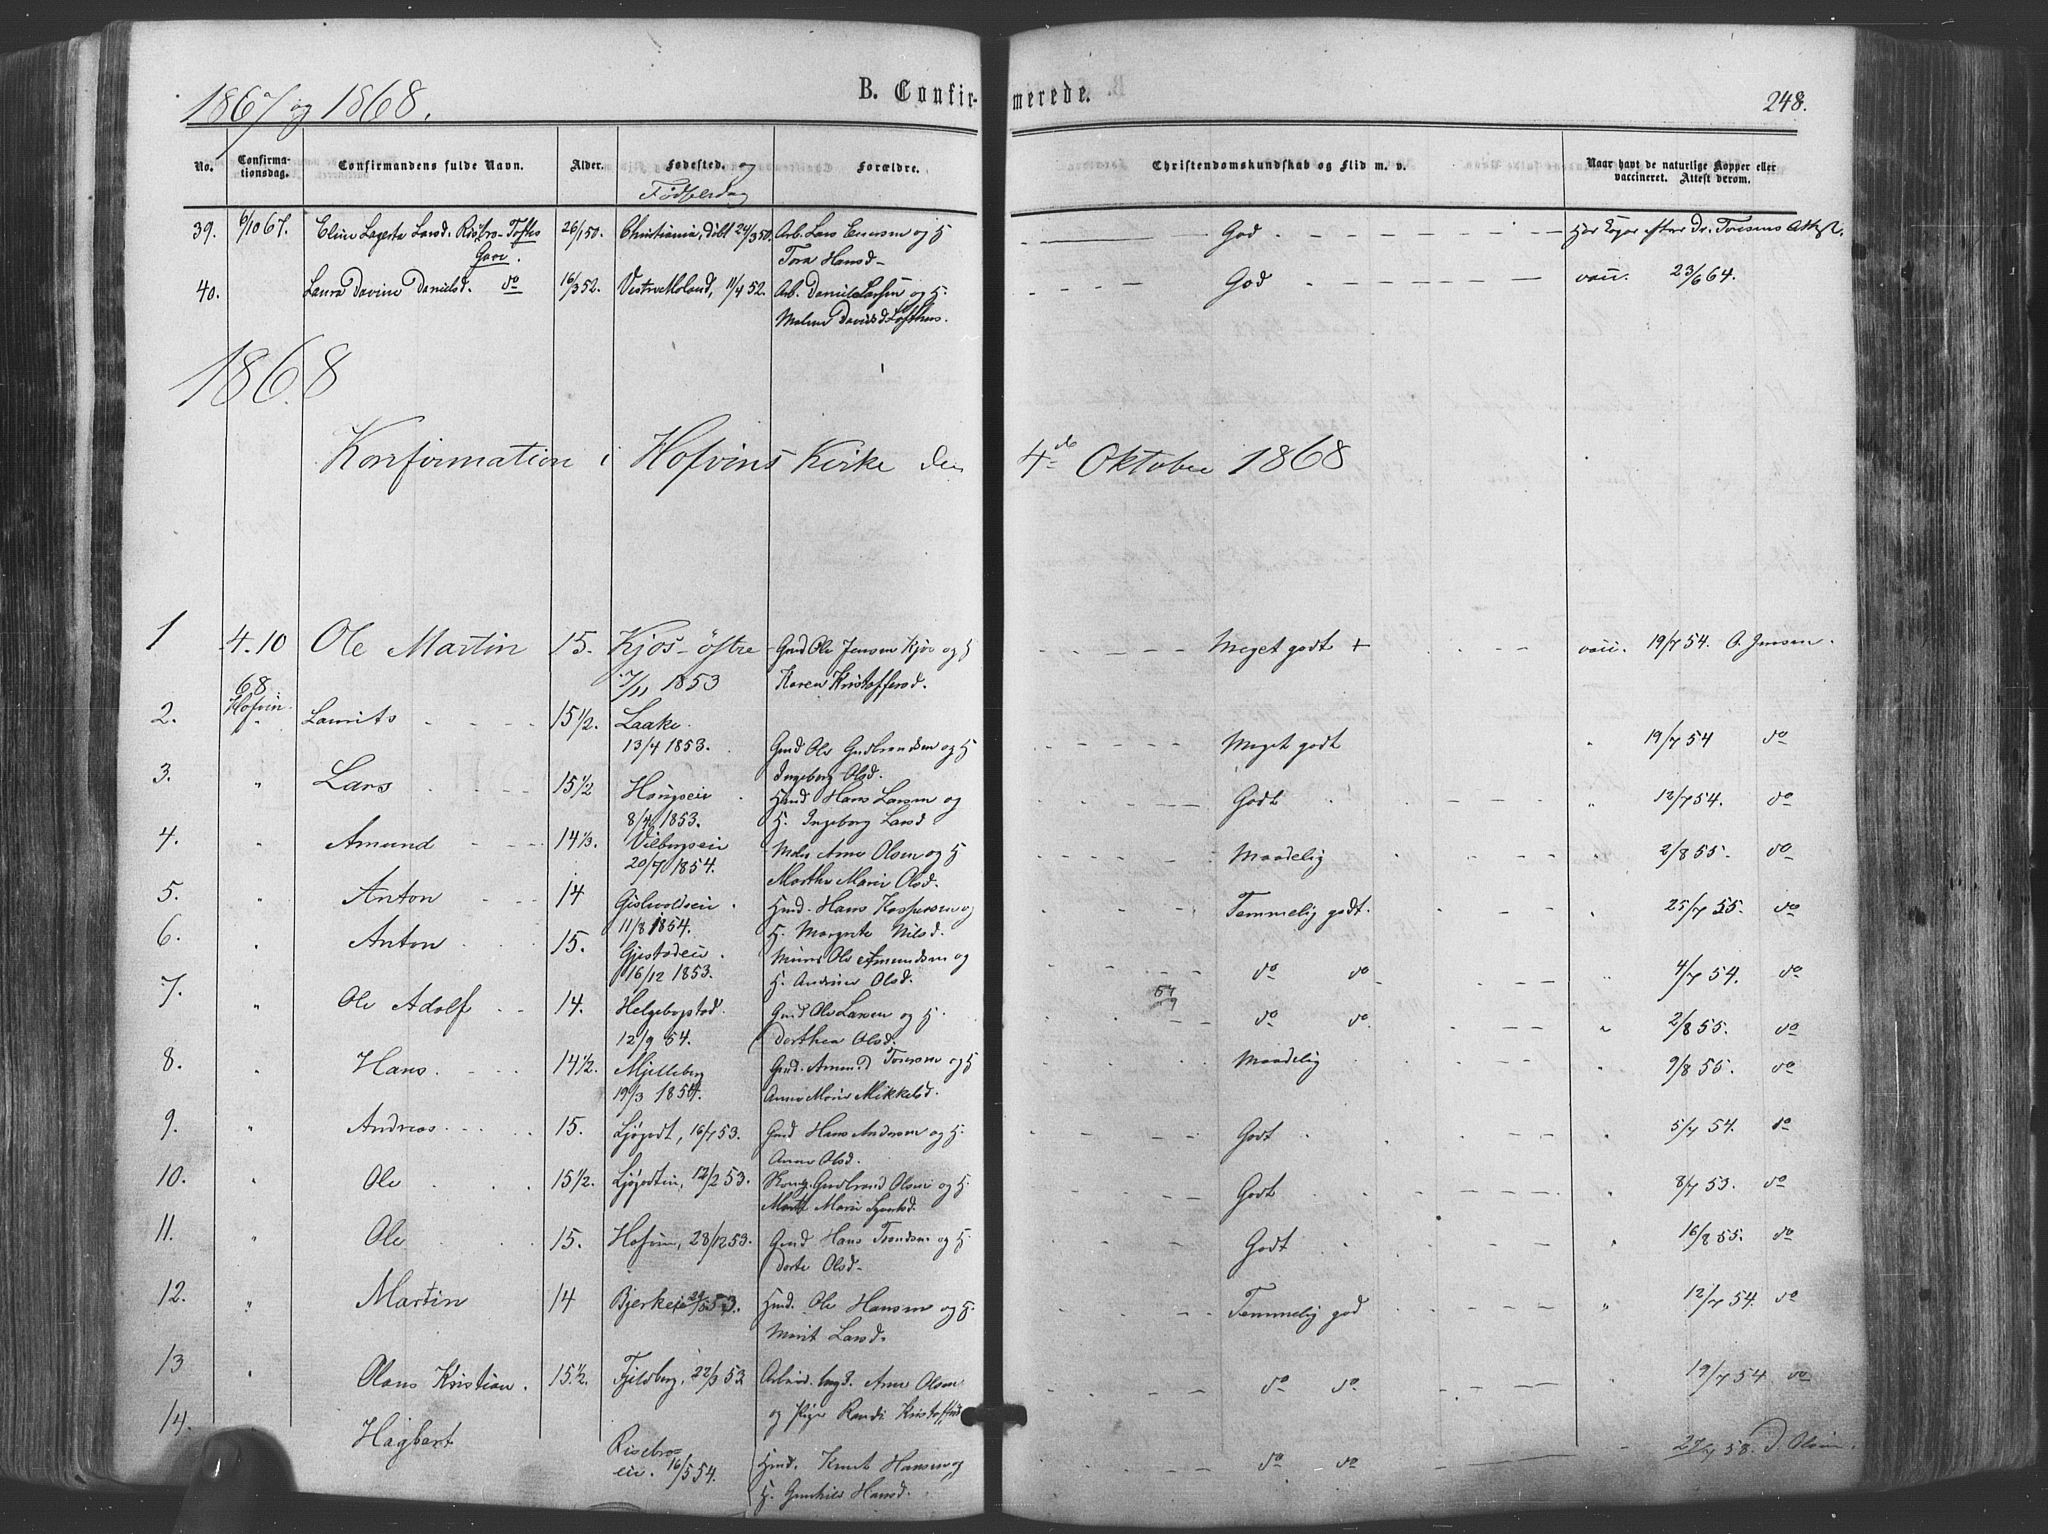 1867 og 1868.
B. Confirmerede.
248.
No.
Confirmationsdag.
Confirmandens fulde Navn.
Alder.
Fødested. og
Fødselsdag
Forældre.
Christendomskundskab og Flid m. v.
Naar havt de naturlige Kopper eller
vaccineret. Attest derom.
39. 6/10 67. Eline Lagesta Larsd. 26/1 50. Christiania, døbt 24/3 50. Arb. Lars og H
Gare. Tora Hansd - God
40. Laura Davine Danielsd. do 16/3 52. Vestre Moland, 11/4 52. Arb. Daniel Larsen og H.
Malene Davidsd. God vacc. 23/6 64.
1868
Konfirmation i Hofvins Kirke den 4de Oktober 1868
1 4.10 Ole Martin 15. Kjos-østre Gmd Ole Jensen Kjos og H Meget godt + vacc. 19/7 54. O. Jensen.
68 7/11 1853 Karen Kristoffersd.
Hofvin
2. " Laurits 15 1/2. Laake.
13/4 1853. Gmd Ole Gudbrandsen og H Meget godt " 19/7 54 do
Ingeborg Olsd.
3. " Lars 15 1/2 Haugseie Hmd Hans Larsen og Godt " 12/7 54. do
8/4 1853. H. Ingeborg Larsd
4. " Amund 14 1/3. Vilbergseie Arne Olsen og H Maadelig " 2/8 55. do
20/7 1854. Marthe Marie Olsd.
5. " Anton 14 Gislevoldseie. Hmd. Hans Kaspersen og Temmelig godt. " 25/7 55. do
11/8 1854. H. Margrete Nilsd.
6. " Anton 15. Gjestadeie. Ole Amundsen og do do " 4/7 54. do
16/12 1853. H. Andrine Olsd.
7. " Ole Adolf 14. Helgebostad. Gmd Ole Larsen og H. do do. " 2/8 55. do
12/9 54. Dorthea Olsd.
8. " Hans. 14 1/2. Mjelleberg Gmd. Amund og H Maadelig 9/8 55. do
19/3 1854. Anne Marie Mikkelsd.
9. " Andreas 15. Ljøgodt, 16/7 53. Gmd Hans Andersen og H. Godt 5/7 54. do
Anne Olsd.
10. " Ole 15 1/2. Ljøgodteie, 12/2 53. Gudbrand Olsen og H. Godt " 8/7 53. do
Marie
11. " Ole 15. Hofvin, 28/12 53. Gmd Hans og H. Godt " 16/8 55. do
Dorte Olsd.
12. " Martin 14 Bjerkeeie Hmd. Ole Hansen og H. Temmelig god " 12/7 54. do
Marit Larsd.
13 " Olaus Kristian. 15 1/2. Fjeldberg, 22/5 53 Arne Olsen do do 19/7 54 do
og Pige Randi
14. Hagbart Risebroeie. 16/5 54. Hmd. Knut Hansen og do do 58.
H. Gunhild Hansd.